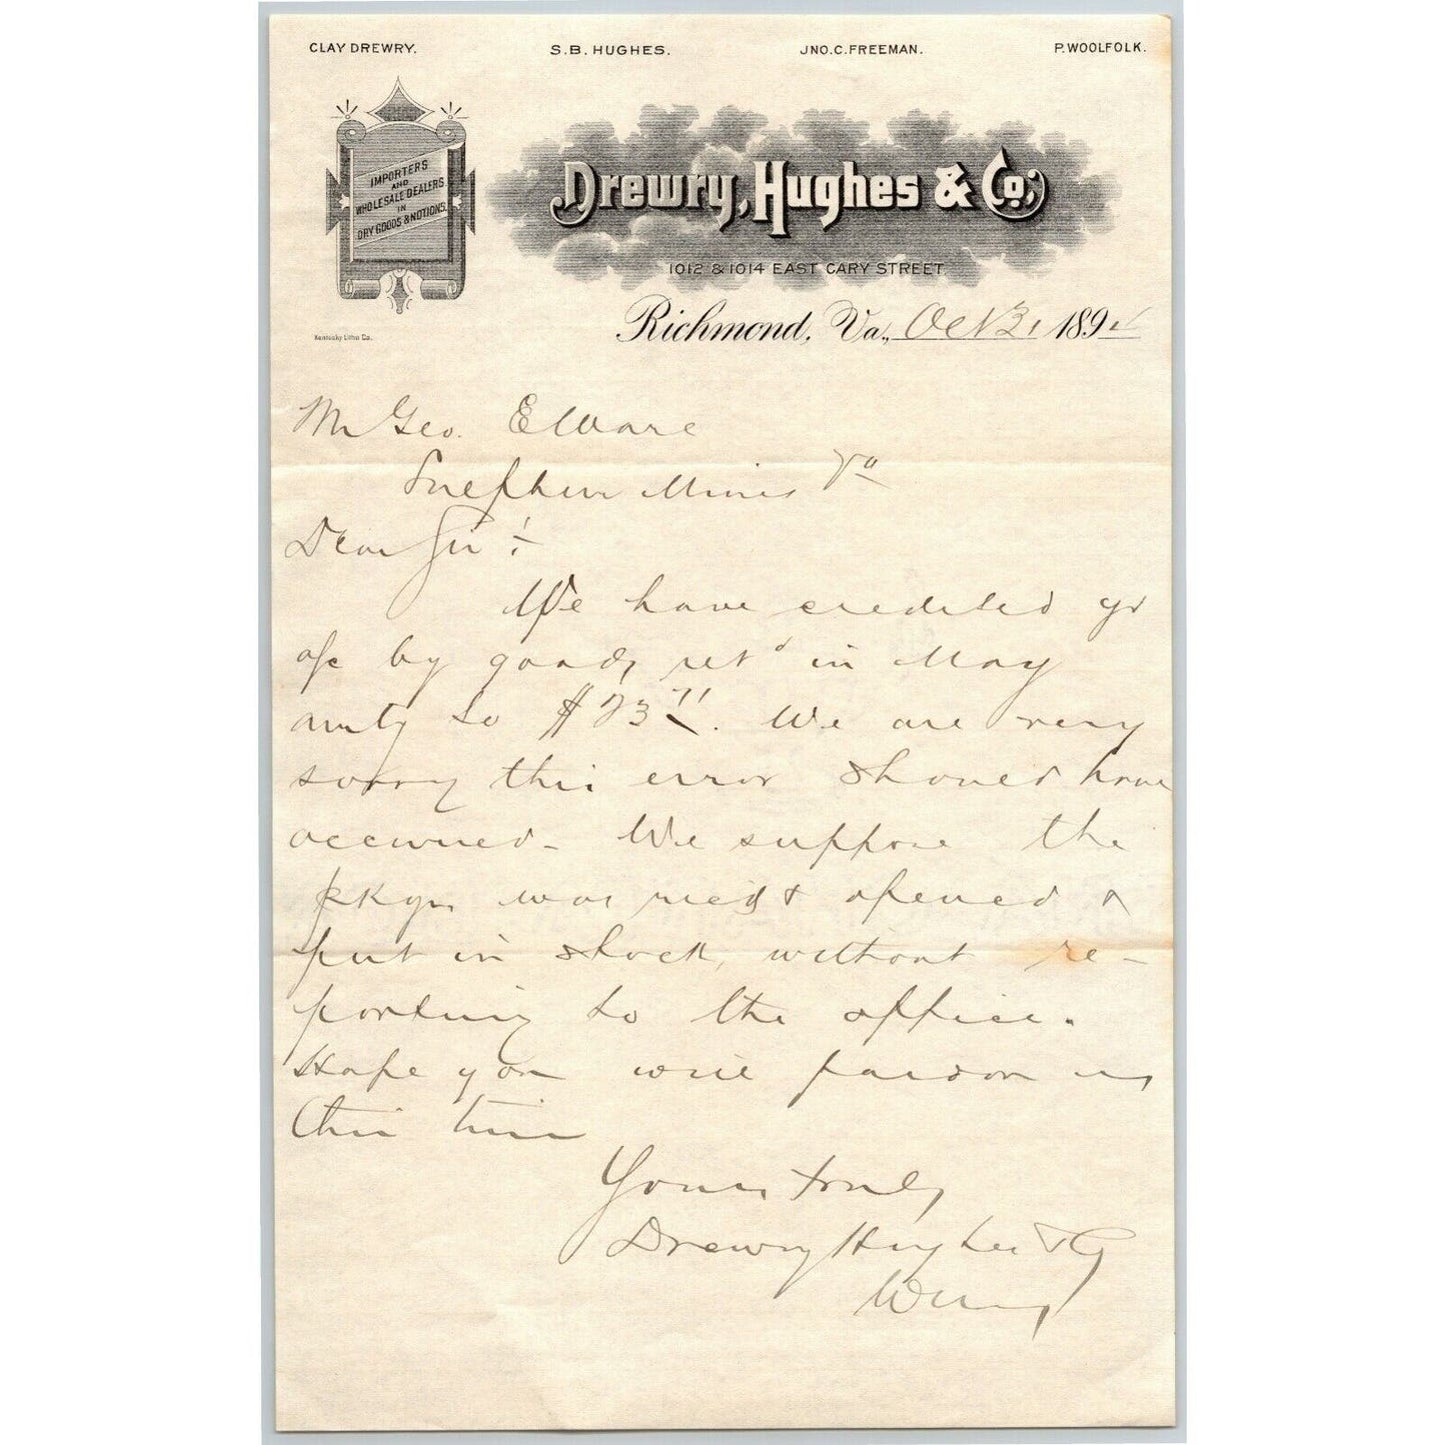 CLAY DREWRY. S.B. HUGHES. JNO. C. FREEMAN. P. WOOLFOLK.
IMPORTERS
AND
WHOLESALE DEALERS
IN
DRY GOODS & NOTIONS.
Drewry, Hughes & Co.,
1012 & 1014 EAST CARY STREET
Kentucky Litho Co.
Richmond, Va., Oct 31 189
Mr Geo.
Mines Va
Dear Sir :
We have credited yr
a/c by goods retd in May
amtg to $23 71. We are very
sorry this error should have
occurred - We suppose the
pkge was rec'd & opened &
put in stock, without re-
porting to the office.
Hope you will pardon us
this time
Yours truly
Drewry Hughes & Co